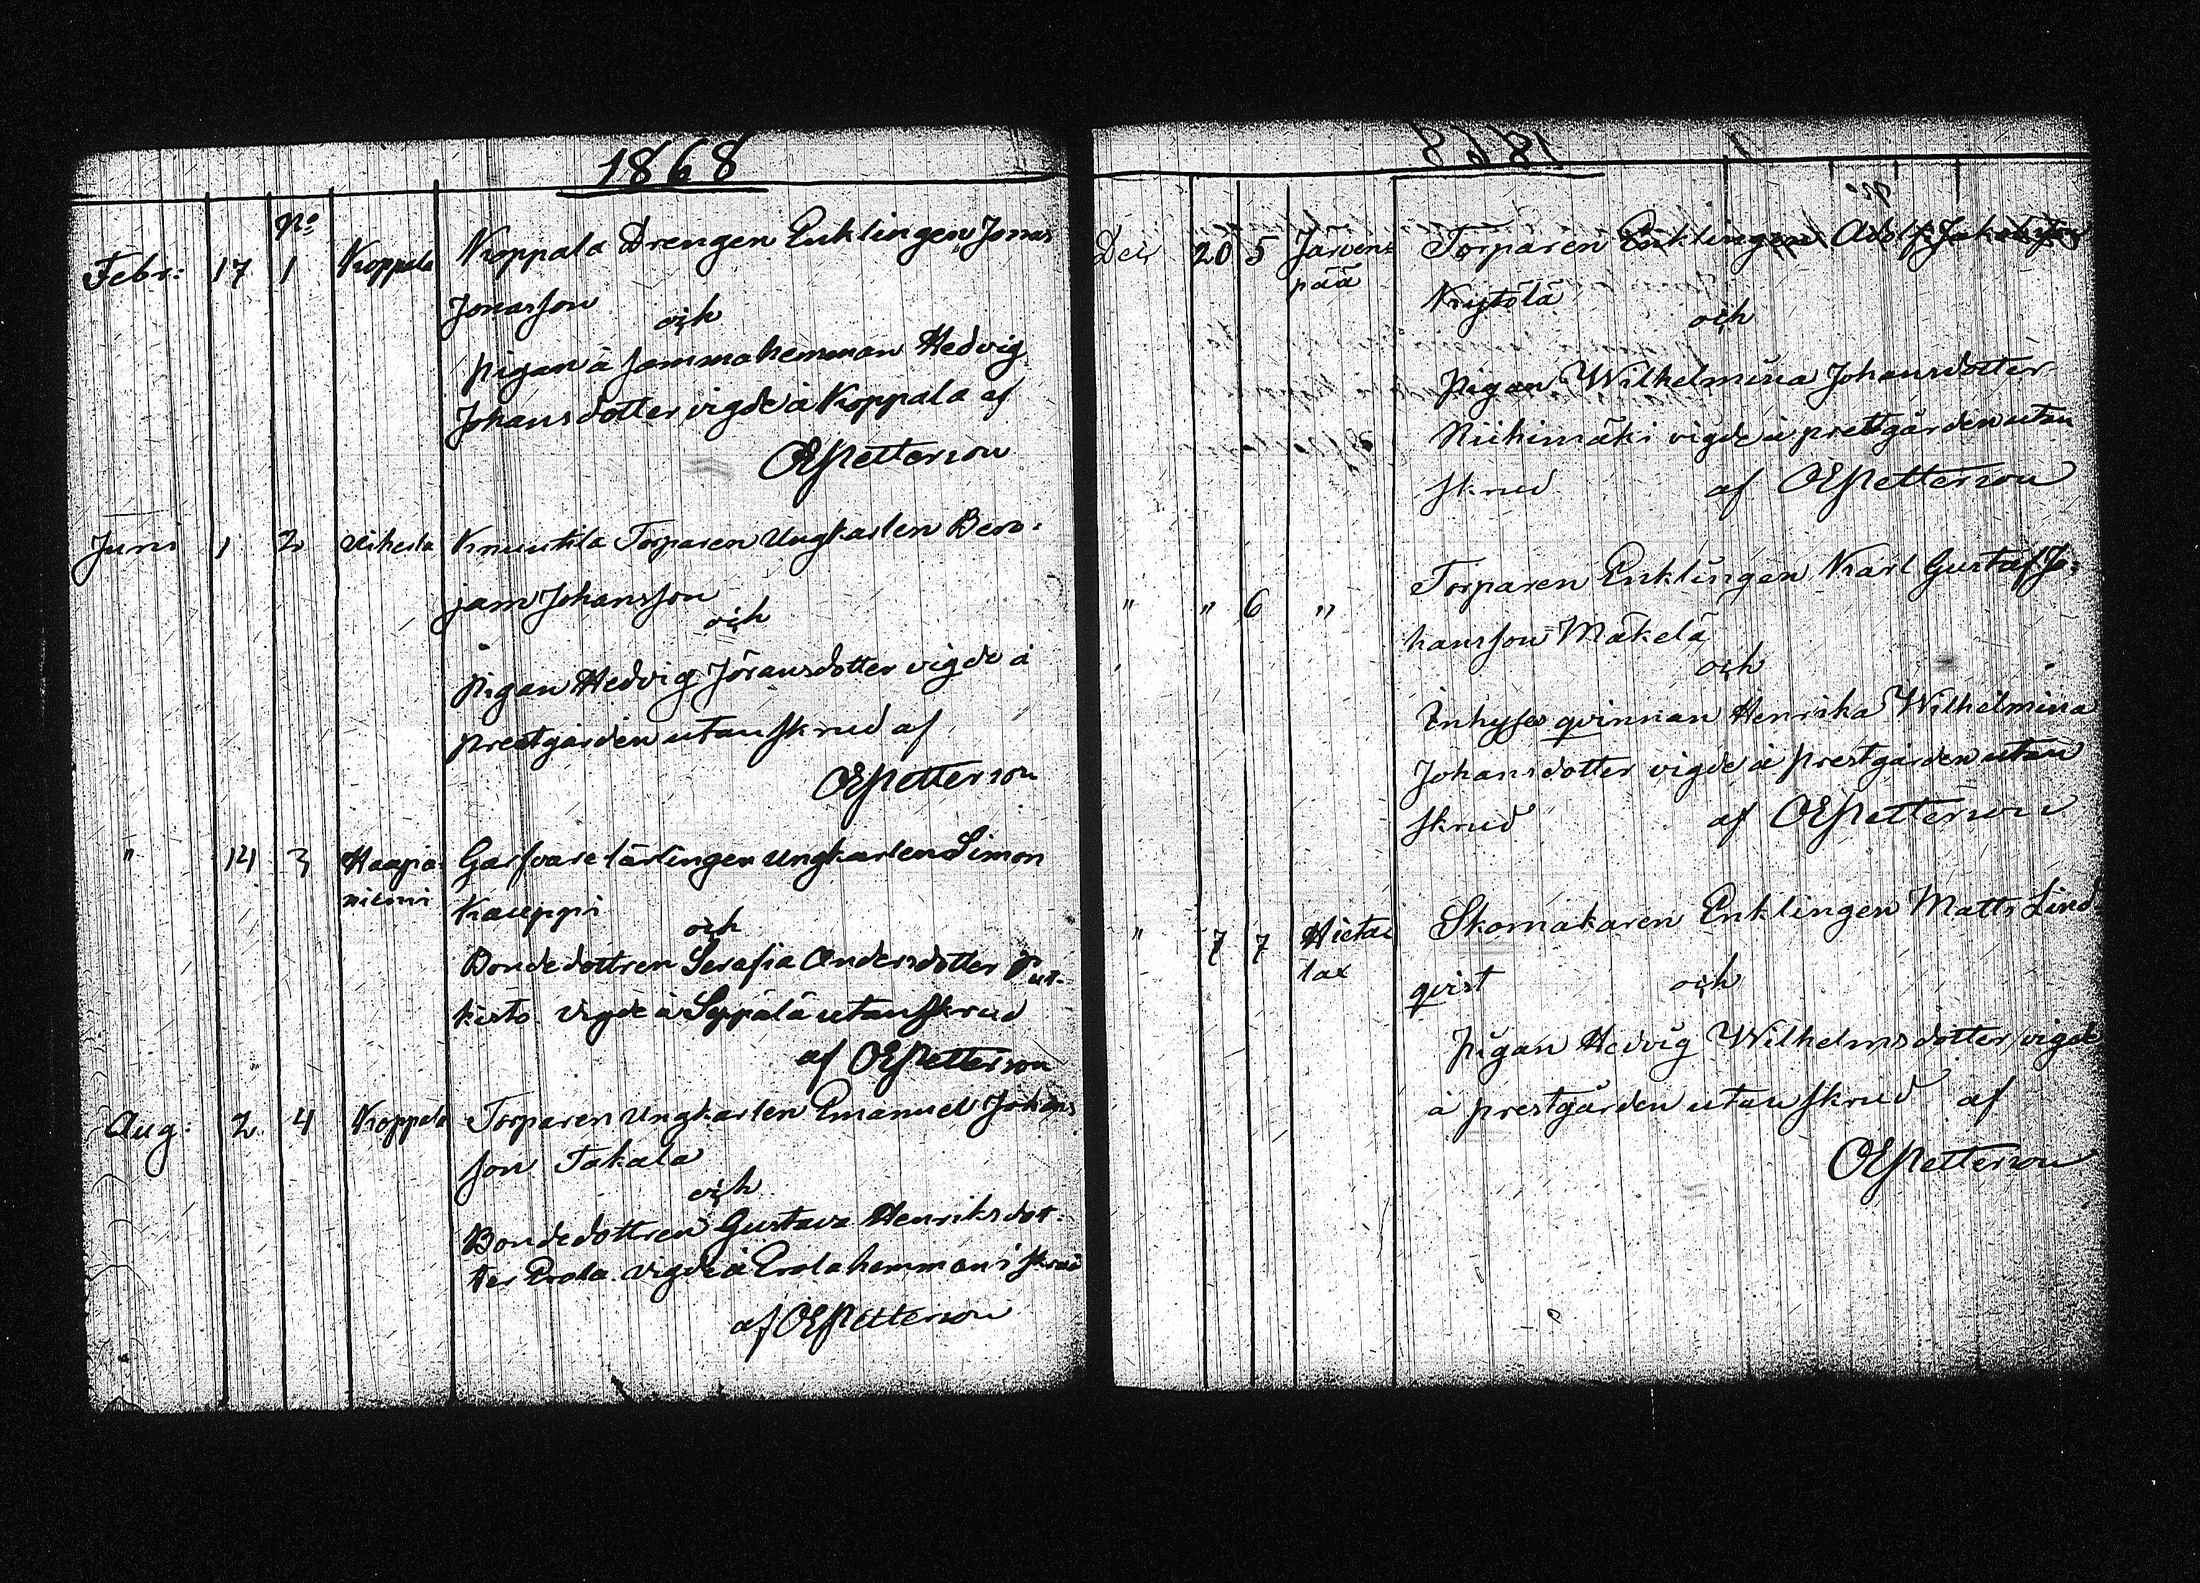 1868
No
Febr: 17 1 Koppala Koppala Drengen Enklingen Jonas
Jonasson
och
pigan å samma hemman Hedvig
Johansdotter vigde å Koppala af
OEPetterson
Juni 1 2 Knuutila Torparen Ungkarlen Ben-
jam Johansson
och
pigan Hedvig Jöransdotter vigde å
prestgården utan skrud af
OEPetterson
" 14 3 Haapa-
niemi
Garfvare lärlingen Ungkarlen Simon
Kauppi
och
Bondedottren Serafia Andersdotter Pur-
kisto vigde å Seppälä utan skrud
af OEPetterson
Aug: 2 4 Koppala Torparen Ungkarlen Emanuel Johans
son Takala
och
Bondedottren Gustava Henriksdot-
ter Erola vigde å Erola hemman i skrud
af OEPetterson
Dec 20 5 Järven-
pää
Torparen Enklingen Adolf Jakobsson
Krytölä
och
Pigan Wilhelmina Johansdotter
Niihimäki vigde å prestgården utan
skrud af OEPetterson
" " 6 " Torparen Enklingen Karl Gustaf Jo-
hansson Mäkelä
och
Inhyses qvinnan Henrika Wilhelmina
Johansdotter vigde å prestgården utan
skrud af OEPetterson
" 7 7 Hieta-
lax
Skomakaren Enklingen Matts Lind
qvist
och
Pigan Hedvig Wilhelmsdotter vigde
å prestgården utan skrud af
OEPetterson